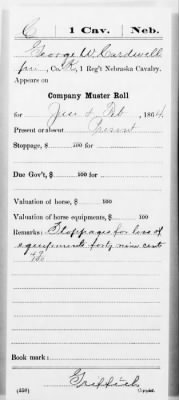 C | 1 Cav. | Neb.
George W. Cardwell
Pri., Co. K, 1 Reg't Nebraska Cavalry.
Appears on
Company Muster Roll
for Jan & Feb, 1864.
Present or absent Present
Stoppage, $ 100 for
Due Gov't, $ 100 for
Valuation of horse, $ 100
Valuation of horse equipments, $ 100
Remarks: Stoppages for loss of
equipments forty nine cents
Book mark:
Griffith
(358) Copyist.